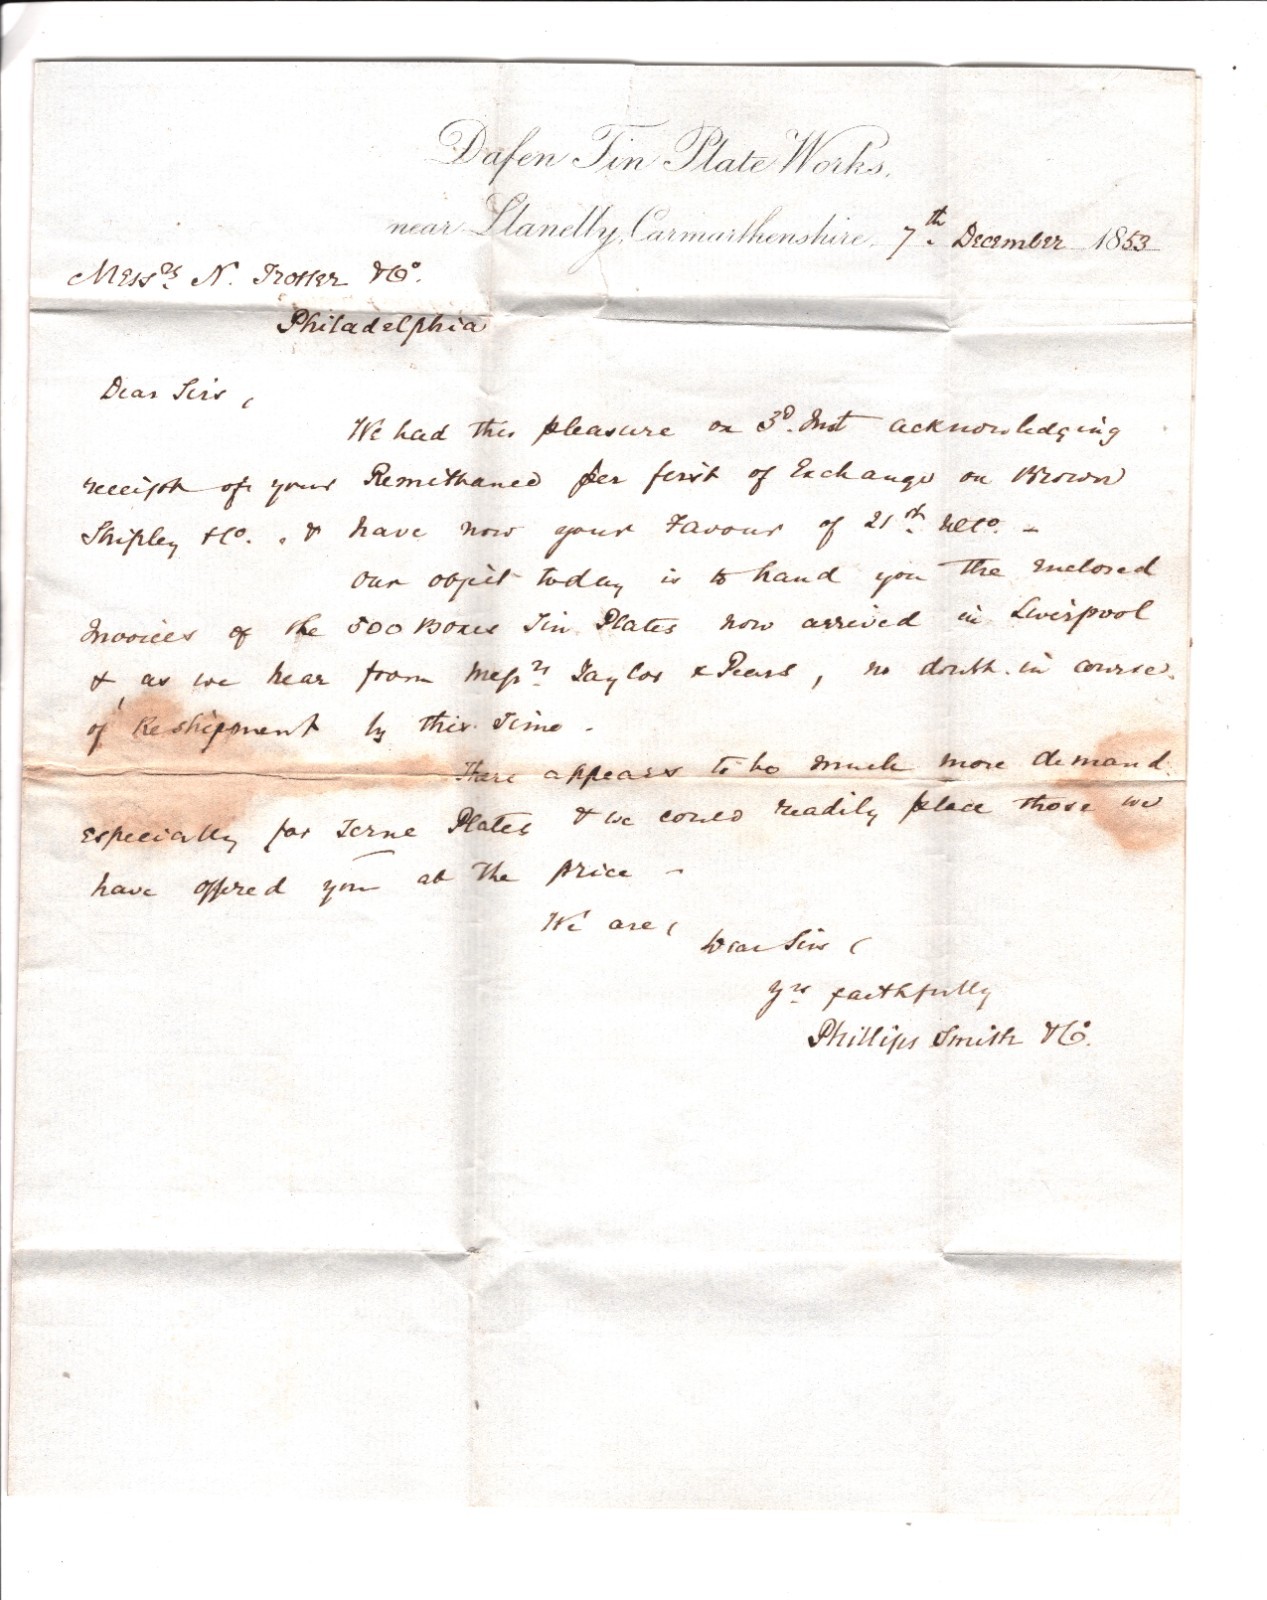 Dafen Tin Plate Works,
near Llanelly, Carmarthenshire, 7th December 1853
Messrs N. Trotter & Co.
Philadelphia
Dear Sirs,
We had this pleasure on 3d. Inst acknowledging
receipt of your Remittance per first of Exchange on Brown
Shipley & Co. & have now your Favour of 21st Ulto. -
Our object today is to hand you the enclosed
Invoices of the 500 Boxes Tin Plates now arrived in Liverpool
& as we hear from Messrs Taylor & Pears, no doubt in course
of Reshipment by this Time -
There appears to be much more demand
especially for Terne Plates & we could readily place those we
have offered you at the price -
We are,
Dear Sirs,
Yrs faithfully
Phillips Smith & Co.